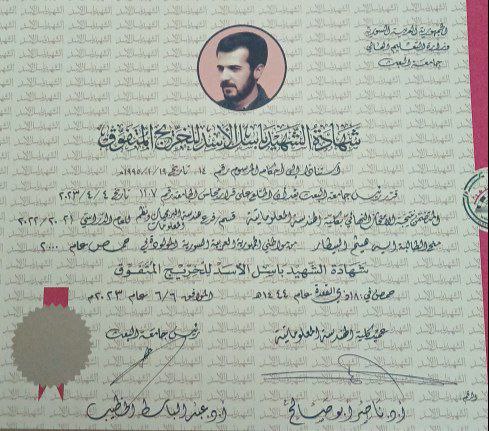 الجمهورية العربية السورية
وزارة التعليم العالي
جامعة البعث
شهادة الشهيد باسل الأسد للخريج المتفوق
استناداً إلى أحكام المرسوم رقم ١٤٠ تاريخ ١٩٩٥/٢/١٩م
قرر رئيس جامعة البعث بعد الاطلاع على قرار مجلس الجامعة رقم ١١٠٧ تاريخ ٢٠٢٣/٤/٤
المتضمن نتيجة الامتحان النهائي بكلية الهندسة المعلوماتية قسم هندسة البرمجيات ونظم المعلومات للعام الدراسي ٢٠٢٢/٢٠٢١
منح الطالبة آية هيثم البيطار من مواطني الجمهورية العربية السورية المولودة في حمص عام ٢٠٠٠
شهادة الشهيد باسل الأسد للخريج المتفوق
حمص في ذي القعدة عام ١٤٤٤هـ الموافق ٦/٦ عام ٢٠٢٣م
عميد كلية الهندسة المعلوماتية
رئيس جامعة البعث
أ.د. ناصر أبو صالح
أ.د. عبد الباسط الخطيب